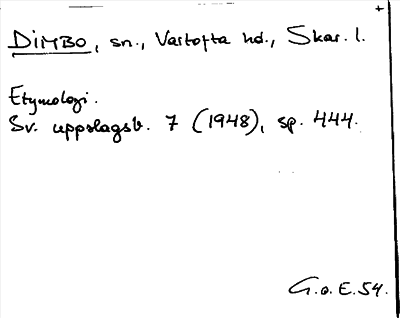 DIMBO, sn., Vartofta hd., Skar. l.
Etymologi.
Sv. uppslagsb. 7 (1948), sp. 444.
G.o.E.54.